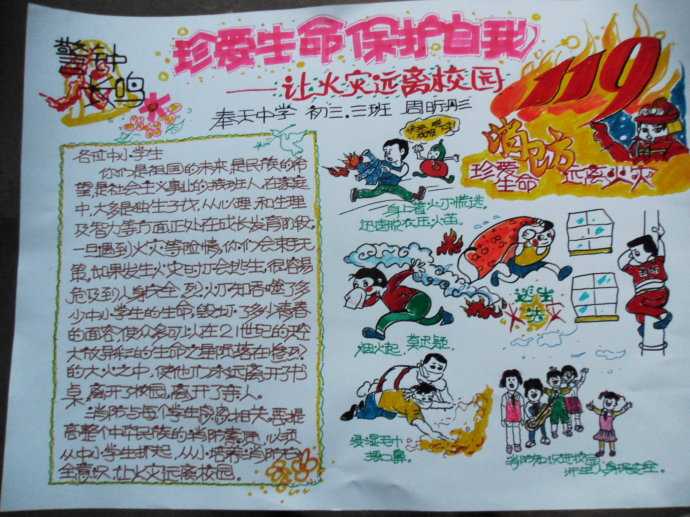 珍爱生命 保护自我
警钟
长鸣
——让火灾远离校园
奉天中学 初三.三班 周昕彤
119
消防
珍爱
生命
远离火灾
各位中小学生
你们是祖国的未来,是民族的希
望,是社会主义事业的接班人。在家庭
中,大多是独生子女,从心理和生理
及智力等方面正处在成长发育阶段。
一旦遇到火灾等险情,你们会束手无
策,如果发生火灾时不会逃生,很容易
危及到人身安全。烈火不知吞噬了多
少中小学生的生命,毁灭了多少青春
的面容,使众多可以在21世纪的天空
大放异彩的生命之星陨落在惨烈
的大火之中,使他们永远离开了书
桌,离开了校园,离开了亲人。
消防与每个学生息息相关,要提
高整个中华民族的消防素质,必须
从中小学生抓起,从小培养消防安
全意识,让火灾远离校园。
身上着火不慌逃
迅速脱衣压火苗
逃生
火灾
烟火起,莫迟疑.
浸湿毛巾
捂口鼻.
消防知识进校园